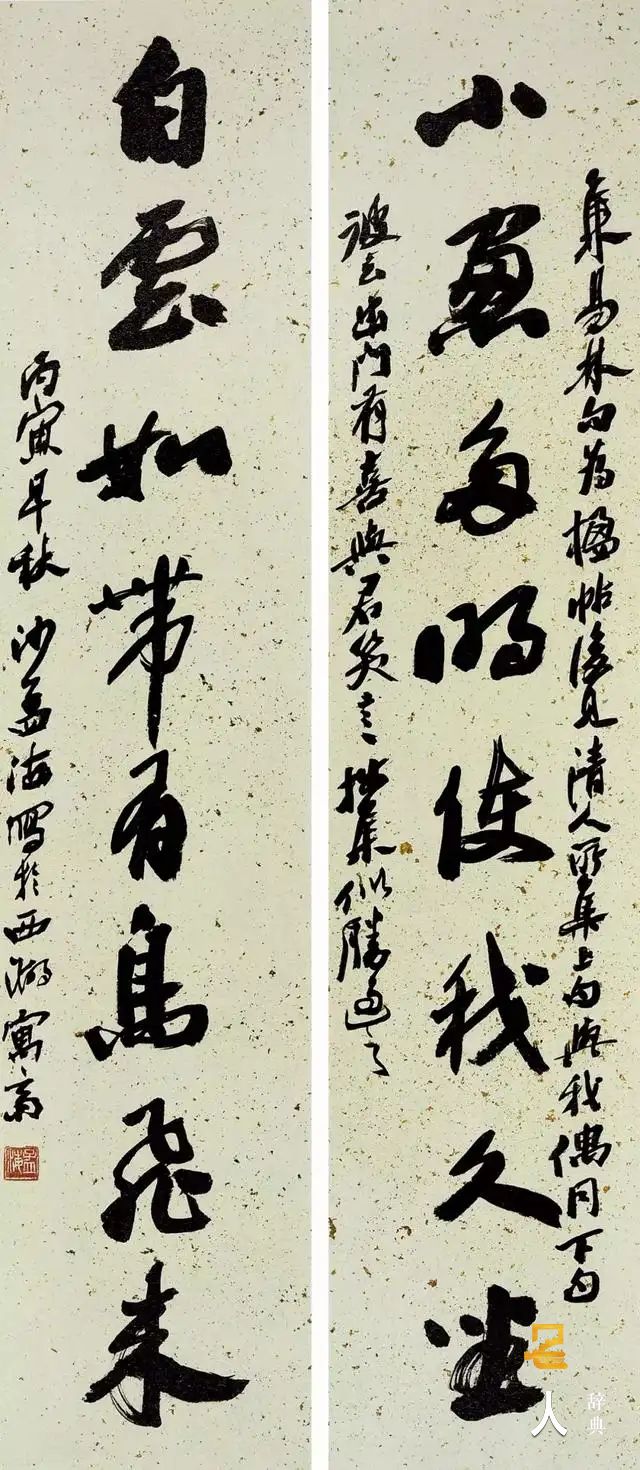 集易林句為楹帖後見清人所集上句與我偶同下句
小窗多明使我久坐
彼云出門有喜與君笑言拙集似勝過之
白雲如帶有鳥飛來
丙寅早秋 沙孟海寫於西湖寓斋
孟海
名人
辞典